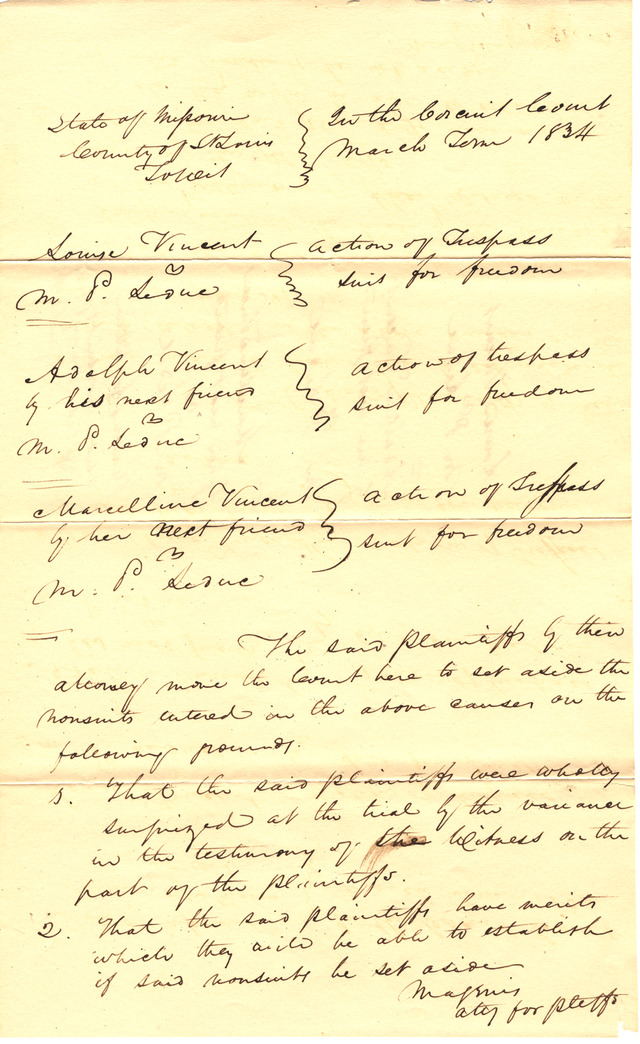 State of Missouri
County of St Louis
To Wit
In the Circuit Court
March Term 1834
Louise Vincent
vs
M. P. Leduc
action of Trespass
suit for freedom
Adolph Vincent
by his next friend
vs
M. P. Leduc
action of trespass
suit for freedom
Marcelline Vincent
by her next friend
vs
M. P. Leduc
action of Tresspass
suit for freedom
The said plaintiffs by their
attorney move the Court here to set aside the
nonsuits entered in the above causes on the
following grounds.
1. That the said plaintiffs were wholly
surprized at the trial by the variance
in the testimony of the Witness on the
part of the plaintiffs.
2. That the said plaintiffs have merits
which they will be able to establish
if said nonsuits be set aside
Magenis
atty for pltffs